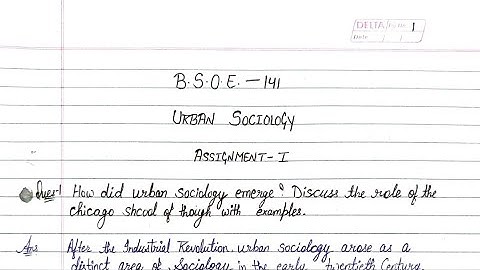 DELTA Pg No. 1
Date / /
B.S.O.E. - 141
URBAN SOCIOLOGY
ASSIGNMENT - I
Ques-1 How did urban sociology emerge? Discuss the role of the
chicago shcool of though with examples.
Ans After the Industrial Revolution, urban sociology arose as a
distinct area of Sociology in the early twentieth Century.